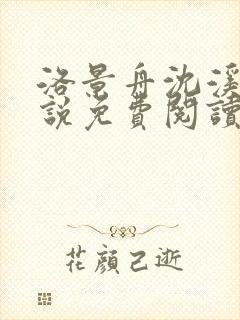 洛景舟沈溪
說免費閱讀
花顏已逝